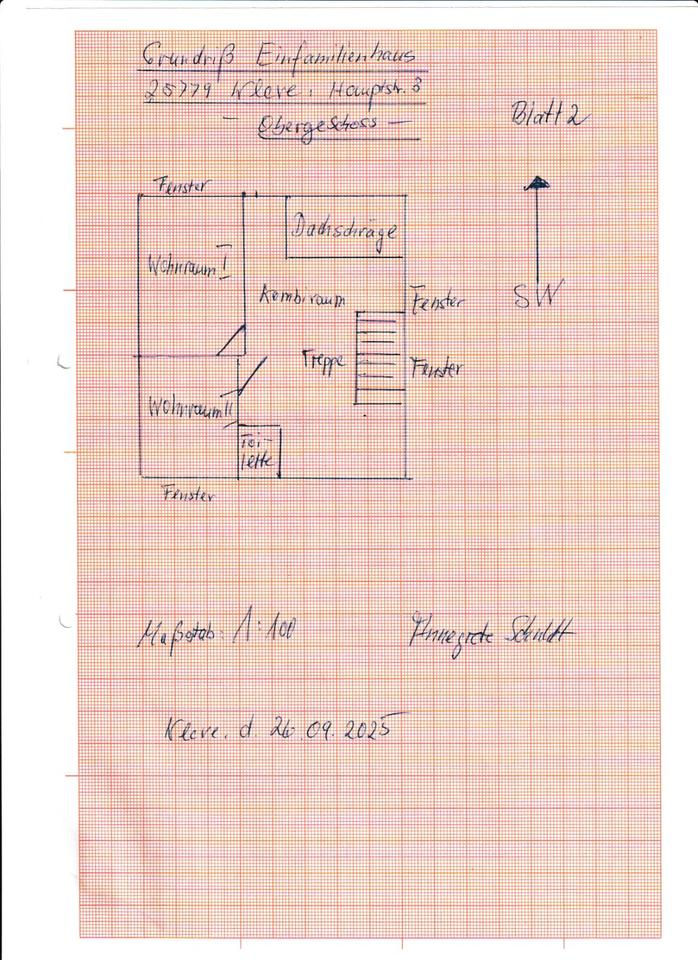 Grundriß Einfamilienhaus
25779 Kleve, Hauptstr. 3
- Obergeschoss -
Blatt 2
Fenster
Dachschräge
Wohnraum I
Kombiraum
Fenster
SW
Treppe
Fenster
Wohnraum II
Toi-
lette
Fenster
Maßstab: 1:100
Annegrete Schuldt
Kleve, d. 26.09.2025